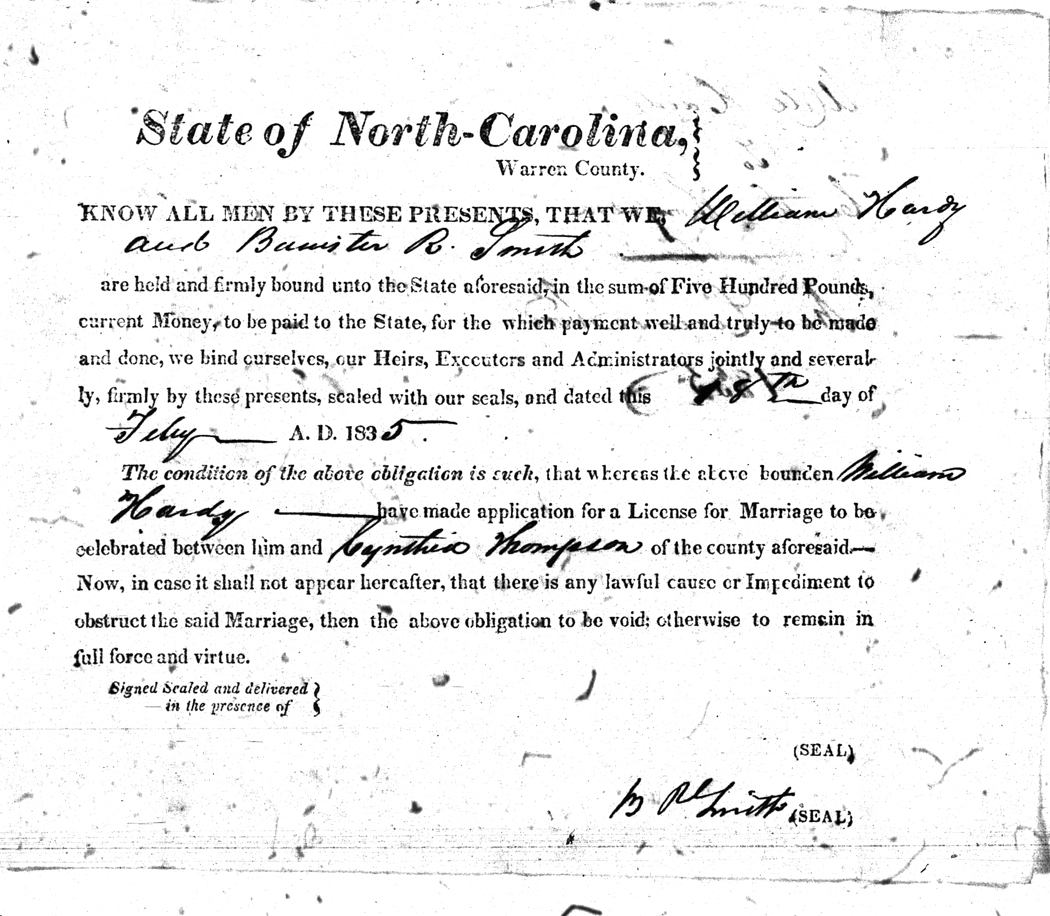 State of North-Carolina,
Warren County.
KNOW ALL MEN BY THESE PRESENTS, THAT WE, William Hardy
and Banister R. Smith
are held and firmly bound unto the State aforesaid, in the sum of Five Hundred Pounds,
current Money, to be paid to the State, for the which payment well and truly to be made
and done, we bind ourselves, our Heirs, Executors and Administrators jointly and several-
ly, firmly by these presents, sealed with our seals, and dated this day of
Feby A. D. 1835.
The condition of the above obligation is such, that whereas the above bounden William
Hardy have made application for a License for Marriage to be
celebrated between him and Cynthia Thompson of the county aforesaid.—
Now, in case it shall not appear hereafter, that there is any lawful cause or Impediment to
obstruct the said Marriage, then the above obligation to be void; otherwise to remain in
full force and virtue.
Signed Sealed and delivered
— in the presence of
(SEAL)
B R Smith (SEAL)